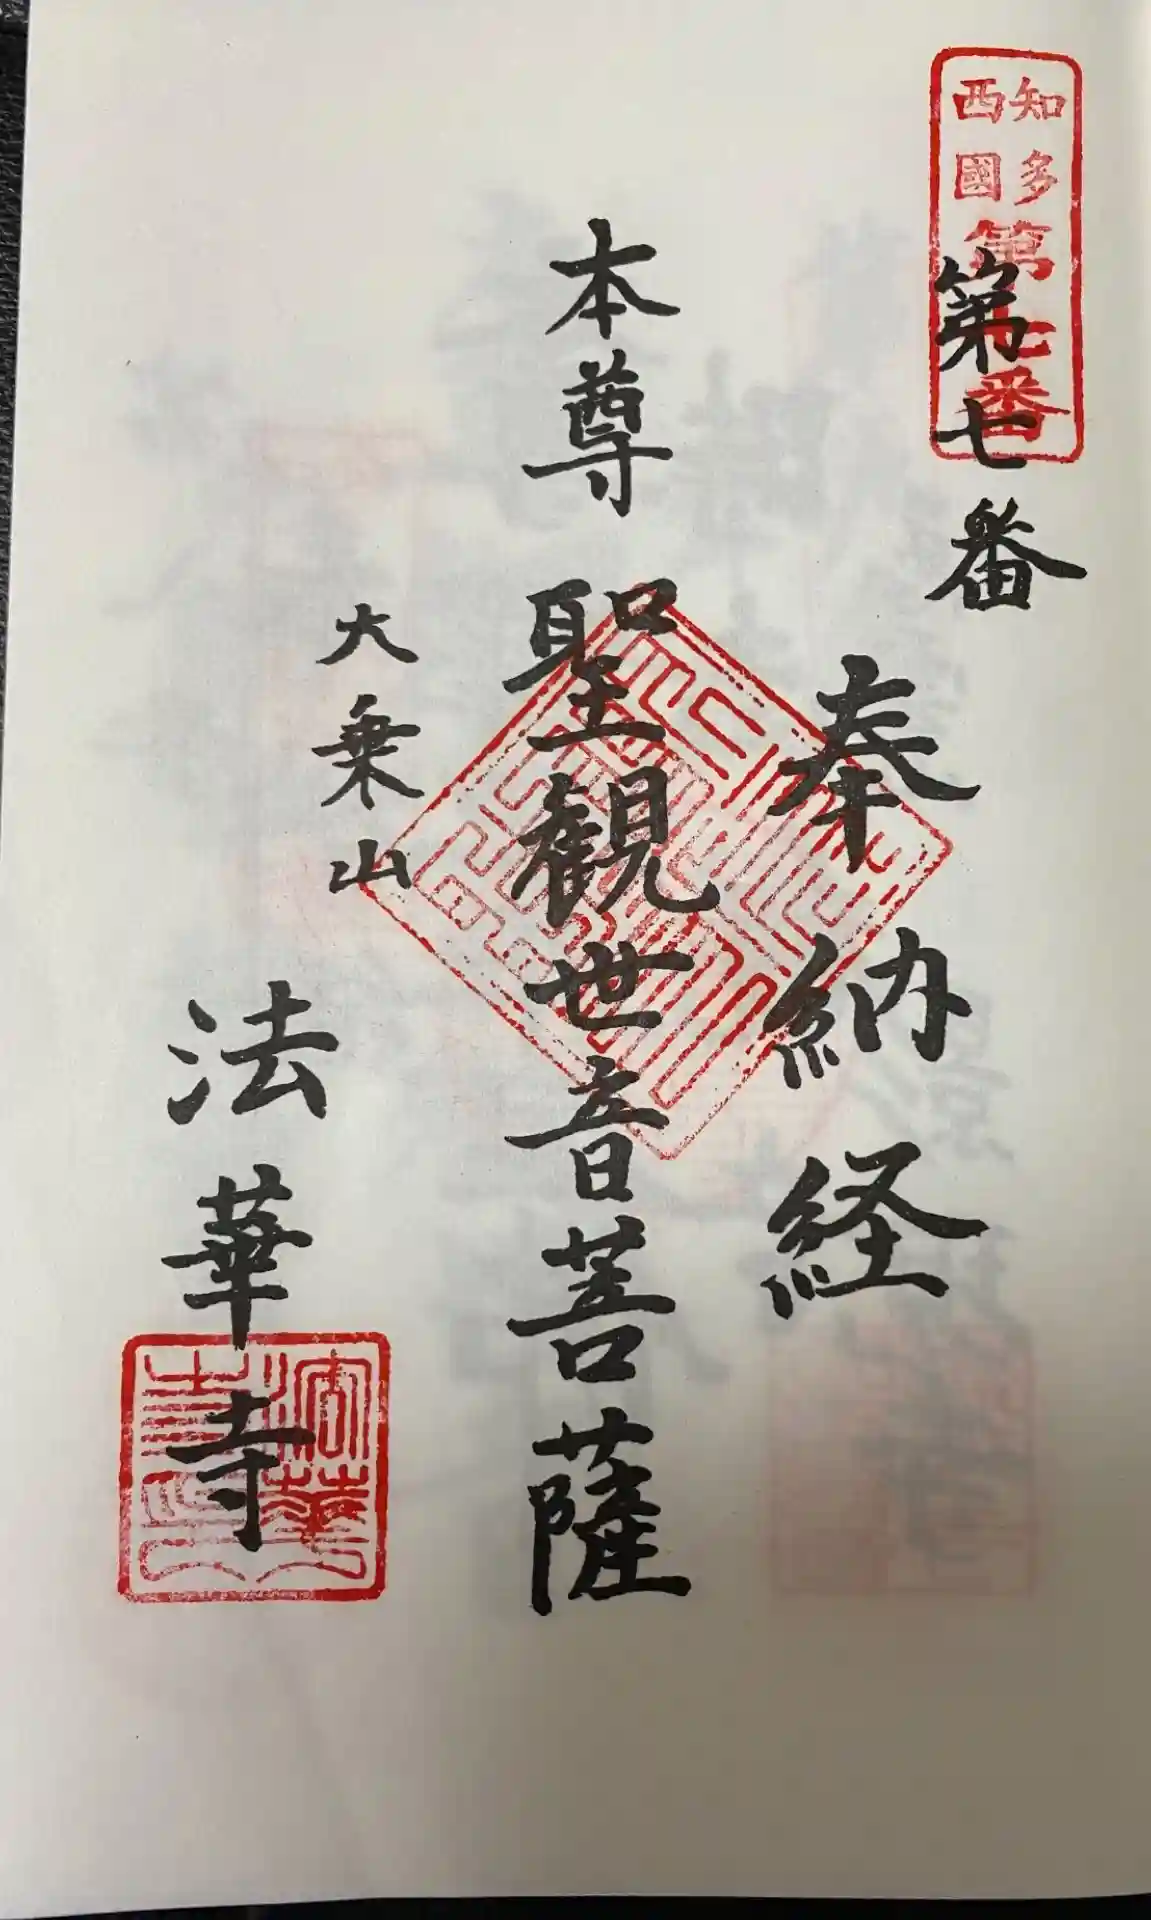 知多
西國
第七番
第七番
奉納経
本尊 聖観世音菩薩
大乗山
法華寺